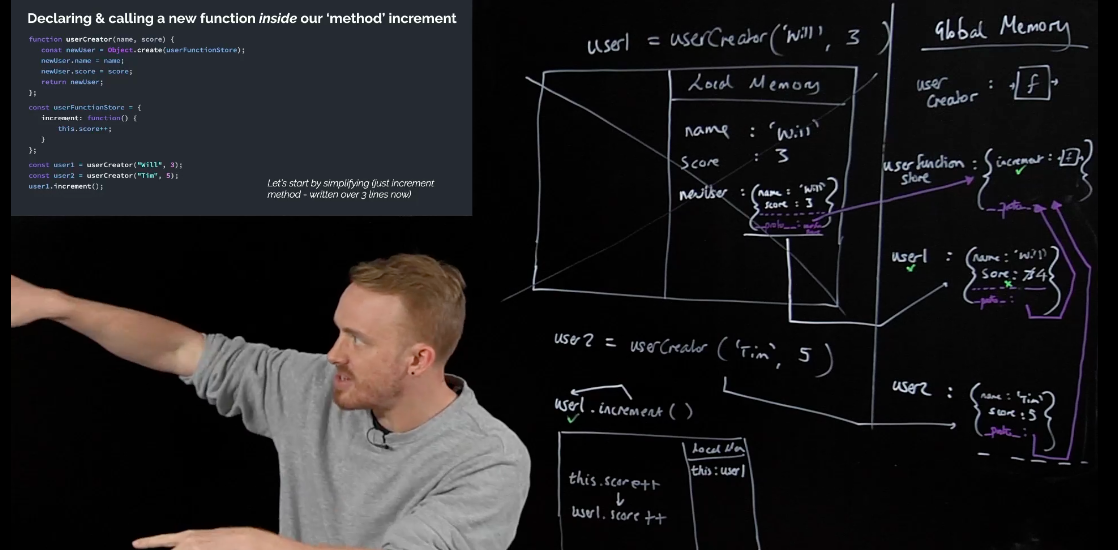 Declaring & calling a new function inside our ‘method’ increment
function userCreator(name, score) {
const newUser = Object.create(userFunctionStore);
newUser.name = name;
newUser.score = score;
return newUser;
};
const userFunctionStore = {
increment: function() {
this.score++;
}
};
const user1 = userCreator("Will", 3);
const user2 = userCreator("Tim", 5);
user1.increment();
Let's start by simplifying (just increment
method - written over 3 lines now)
user1 = userCreator('Will', 3 )
Local Memory
name : 'Will'
score : 3
newUser : {name : 'Will'
score : 3
__proto__ :
}
user2 = userCreator ('Tim', 5 )
user1.increment ( )
Local Mem
this.score++
this : user1
user1.score ++
Global Memory
user
Creator : f
userfunction
store : {increment : f
__proto__
}
user1 : {name : 'Will'
score : 4
__proto__ :
}
user2 : {name : 'Tim'
score : 5
__proto__ :
}